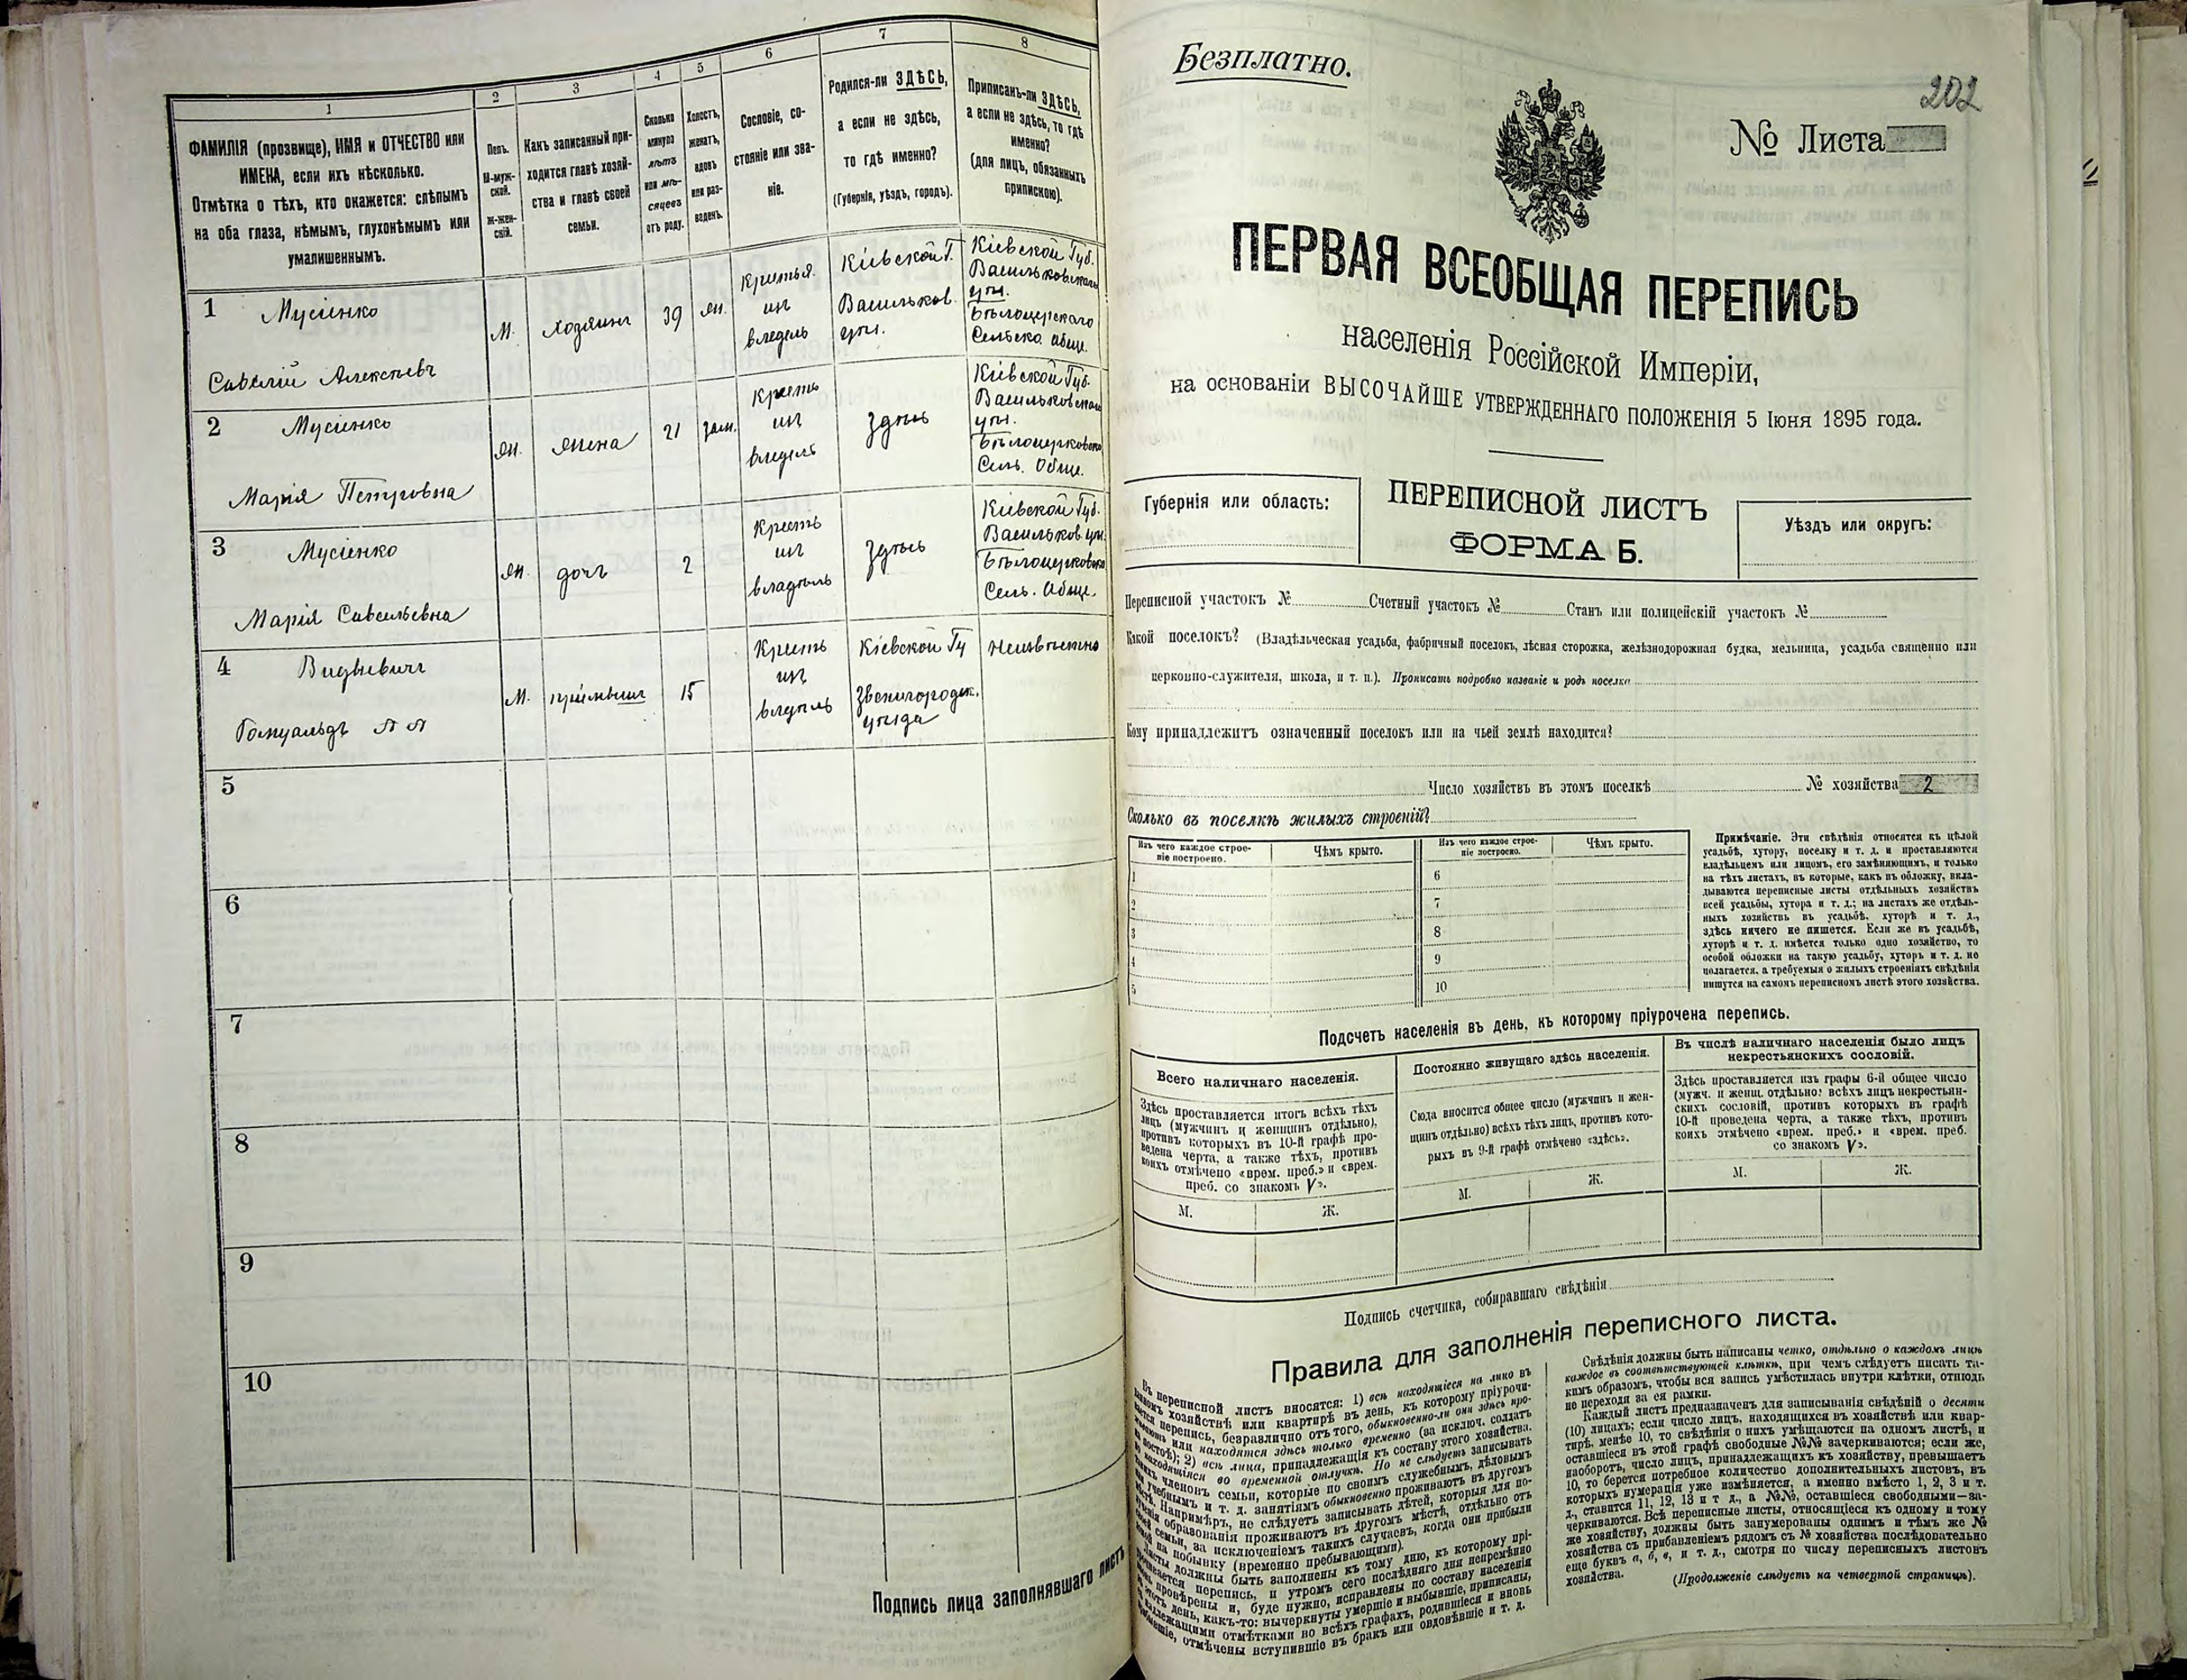 1
2
3
4
5
6
7
8
ФАМИЛІЯ (прозвище), ИМЯ и ОТЧЕСТВО или
ИМЕНА, если ихъ нѣсколько.
Отмѣтка о тѣхъ, кто окажется: слѣпымъ
на оба глаза, нѣмымъ, глухонѣмымъ или
умалишеннымъ.
Полъ.
М-муж-
ской.
Ж-жен-
скій.
Какъ записанный при-
ходится главѣ хозяй-
ства и главѣ своей
семьи.
Сколько
минуло
лѣтъ
или мѣ-
сяцевъ
отъ роду.
Холостъ,
женатъ,
вдовъ
или раз-
веденъ.
Сословіе, со-
стояніе или зва-
ніе.
Родился-ли ЗДѢСЬ,
а если не здѣсь,
то гдѣ именно?
(Губернія, уѣздъ, городъ).
Приписанъ-ли ЗДѢСЬ,
а если не здѣсь, то гдѣ
именно?
(для лицъ, обязанныхъ
припискою).
1
Мусіенко
Савелій Алексѣевъ
М.
хозяинъ
39
жен.
Кіевской Г.
Васильков.
Кіевской Губ.
2
Мусіенко
Марія Петровна
жен.
жена
21
зам.
Крест
изъ
здѣсь
Кіевской Губ.
3
Мусіенко
Марія Савельевна
жен.
дочь
2
Крест
изъ
владѣль
здѣсь
Кіевской Губ.
Васильков.
Сель. Обще.
4
М.
15
Крест
изъ
Кіевской Гу
Звенигородск.
уѣзда
Неизвѣстно
5
6
7
8
9
10
Подпись лица заполнявшаго листъ
Безплатно.
202
№ Листа
ПЕРВАЯ ВСЕОБЩАЯ ПЕРЕПИСЬ
населенія Россійской Имперіи,
на основаніи ВЫСОЧАЙШЕ УТВЕРЖДЕННАГО ПОЛОЖЕНІЯ 5 Іюня 1895 года.
Губернія или область:
ПЕРЕПИСНОЙ ЛИСТЪ
ФОРМА Б.
Уѣздъ или округъ:
Переписной участокъ № Счетный участокъ № Станъ или полицейскій участокъ №
Какой поселокъ? (Владѣльческая усадьба, фабричный поселокъ, лѣсная сторожка, желѣзнодорожная будка, мельница, усадьба священно или
церковно-служителя, школа, и т. п.). Прописать подробно названіе и родъ поселка
Кому принадлежитъ означенный поселокъ или на чьей землѣ находится?
Число хозяйствъ въ этомъ поселкѣ № хозяйства 2
Сколько въ поселкѣ жилыхъ строеній?
Изъ чего каждое строе-
ніе построено.
Чѣмъ крыто.
Изъ чего каждое строе-
ніе построено.
Чѣмъ крыто.
1
2
3
4
5
6
7
8
9
10
Примѣчаніе. Эти свѣдѣнія относятся къ цѣлой
усадьбѣ, хутору, поселку и т. д. и проставляются
владѣльцемъ или лицомъ, его замѣняющимъ, и только
на тѣхъ листахъ, въ которые, какъ въ обложку, вкла-
дываются переписные листы отдѣльныхъ хозяйствъ
всей усадьбы, хутора и т. д.; на листахъ же отдѣль-
ныхъ хозяйствъ въ усадьбѣ, хуторѣ и т. д.,
здѣсь ничего не пишется. Если же въ усадьбѣ,
хуторѣ и т. д. имѣется только одно хозяйство, то
особой обложки на такую усадьбу, хуторъ и т. д. не
полагается, а требуемыя о жилыхъ строеніяхъ свѣдѣнія
пишутся на самомъ переписномъ листѣ этого хозяйства.
Подсчетъ населенія въ день, къ которому пріурочена перепись.
Всего наличнаго населенія.
Здѣсь проставляется итогъ всѣхъ тѣхъ
лицъ (мужчинъ и женщинъ отдѣльно),
противъ которыхъ въ 10-й графѣ про-
ведена черта, а также тѣхъ, противъ
коихъ отмѣчено «врем. преб.» и «врем.
преб. со знакомъ V».
М.
Ж.
Постоянно живущаго здѣсь населенія.
Сюда вносится общее число (мужчинъ и жен-
щинъ отдѣльно) всѣхъ тѣхъ лицъ, противъ кото-
рыхъ въ 9-й графѣ отмѣчено «здѣсь».
М.
Ж.
Въ числѣ наличнаго населенія было лицъ
некрестьянскихъ сословій.
Здѣсь проставляется изъ графы 6-й общее число
(мужч. и женщ. отдѣльно) всѣхъ лицъ некрестьян-
скихъ сословій, противъ которыхъ въ графѣ
10-й проведена черта, а также тѣхъ, противъ
коихъ отмѣчено «врем. преб.» и «врем. преб.
со знакомъ V».
М.
Ж.
Подпись счетчика, собиравшаго свѣдѣнія
Правила для заполненія переписного листа.
Въ переписной листъ вносятся: 1) всѣ находящіеся на лицо въ
хозяйствѣ или квартирѣ въ день, къ которому пріурочи-
вается перепись, безразлично отъ того, обыкновенно-ли они здѣсь про-
живаютъ или находятся здѣсь только временно (за исключ. солдатъ
на постоѣ); 2) всѣ лица, принадлежащія къ составу этого хозяйства,
но находящіяся во временной отлучкѣ. Но не слѣдуетъ записывать
членовъ семьи, которые по своимъ служебнымъ, дѣловымъ
учебнымъ и т. д. занятіямъ обыкновенно проживаютъ въ другомъ
мѣстѣ. Напримѣръ, не слѣдуетъ записывать дѣтей, которыя для по-
лученія образованія проживаютъ въ другомъ мѣстѣ, отдѣльно отъ
своей семьи, за исключеніемъ такихъ случаевъ, когда они прибыли
на побывку (временно пребывающими).
Листы должны быть заполнены къ тому дню, къ которому прі-
урочивается перепись, и утромъ сего послѣдняго дня непремѣнно
провѣрены и, буде нужно, исправлены по составу населенія
въ этотъ день, какъ-то: вычеркнуты умершіе и выбывшіе, приписаны,
съ надлежащими отмѣтками во всѣхъ графахъ, родившіеся и вновь
прибывшіе, отмѣчены вступившіе въ бракъ или овдовѣвшіе и т. д.
Свѣдѣнія должны быть написаны четко, отдѣльно о каждомъ лицѣ
каждое въ соотвѣтствующей клѣткѣ, при чемъ слѣдуетъ писать та-
кимъ образомъ, чтобы вся запись умѣстилась внутри клѣтки, отнюдь
не переходя за ея рамки.
Каждый листъ предназначенъ для записыванія свѣдѣній о десяти
(10) лицахъ; если число лицъ, находящихся въ хозяйствѣ или квар-
тирѣ, менѣе 10, то свѣдѣнія о нихъ умѣщаются на одномъ листѣ, и
оставшіеся въ этой графѣ свободные №№ зачеркиваются; если же,
наоборотъ, число лицъ, принадлежащихъ къ хозяйству, превышаетъ
10, то берется потребное количество дополнительныхъ листовъ, въ
которыхъ нумерація уже измѣняется, а именно вмѣсто 1, 2, 3 и т.
д., ставится 11, 12, 13 и т д., а №№, оставшіеся свободными—за-
черкиваются. Всѣ переписные листы, относящіеся къ одному и тому
же хозяйству, должны быть занумерованы однимъ и тѣмъ же №
хозяйства съ прибавленіемъ рядомъ съ № хозяйства послѣдовательно
еще буквъ а, б, в, и т. д., смотря по числу переписныхъ листовъ
хозяйства.
(Продолженіе слѣдуетъ на четвертой страницѣ).